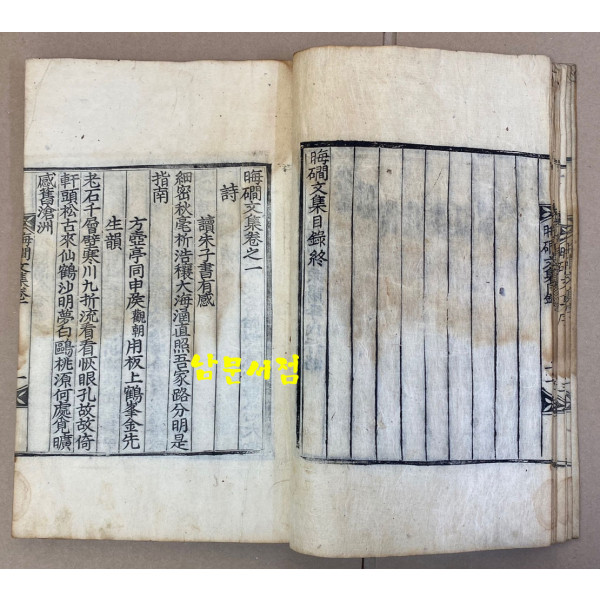 晦磵文集目錄終
晦磵文集卷之一
詩
讀朱子書有感
細密秋毫析浩穰大海涵直照吾家路分明是
指南
方壺亭同申侯觀朝用板上鶴峯金先
生韻
老石千層壁寒川九折流看看恢眼孔故故倚
軒頭松古來仙鶴沙明夢白鷗桃源何處覓曠
感舊滄洲
晦磵文集目錄
남문서점